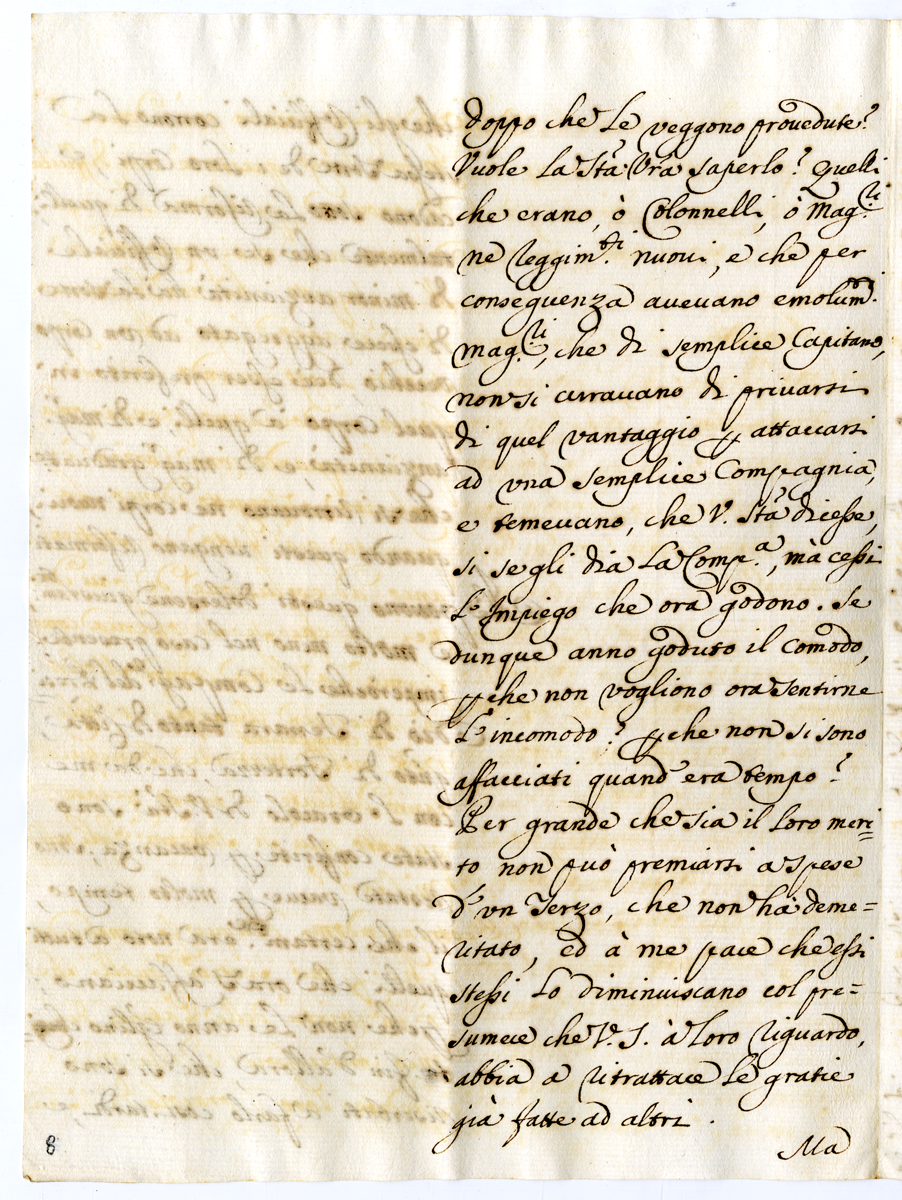 doppo che le veggono provedute?
Vuole la Stà Vrà saperlo? Quelli
che erano, ò Colonnelli, ò Mag.ri
ne Reggim.ti nuovi, e che per
conseguenza avevano emolum.ti
mag.ri, che di semplice Capitano,
non si curavano di privarsi
di quel vantaggio p attaccarsi
ad vna semplice Compagnia,
e temevano, che V. Stà dicesse,
si se gli dia la Comp.a, mà cessi
l'Impiego che ora godono. Se
dunque anno goduto il comodo,
pche non vogliono ora sentirne
l'incomodo? pche non si sono
affacciati quand'era tempo?
Per grande che sia il loro meri=
to non può premiarsi a spese
d'vn Terzo, che non hà deme=
ritato, ed à me pare che essi
stessi lo diminuiscano col pre=
sumere che V. S. à loro riguardo,
abbia a ritrattare le gratie
già fatte ad altri.
Ma
8